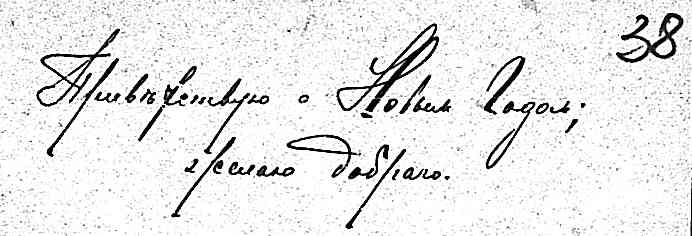 38
Привѣтствую с Новым Годом;
желаю добраго.